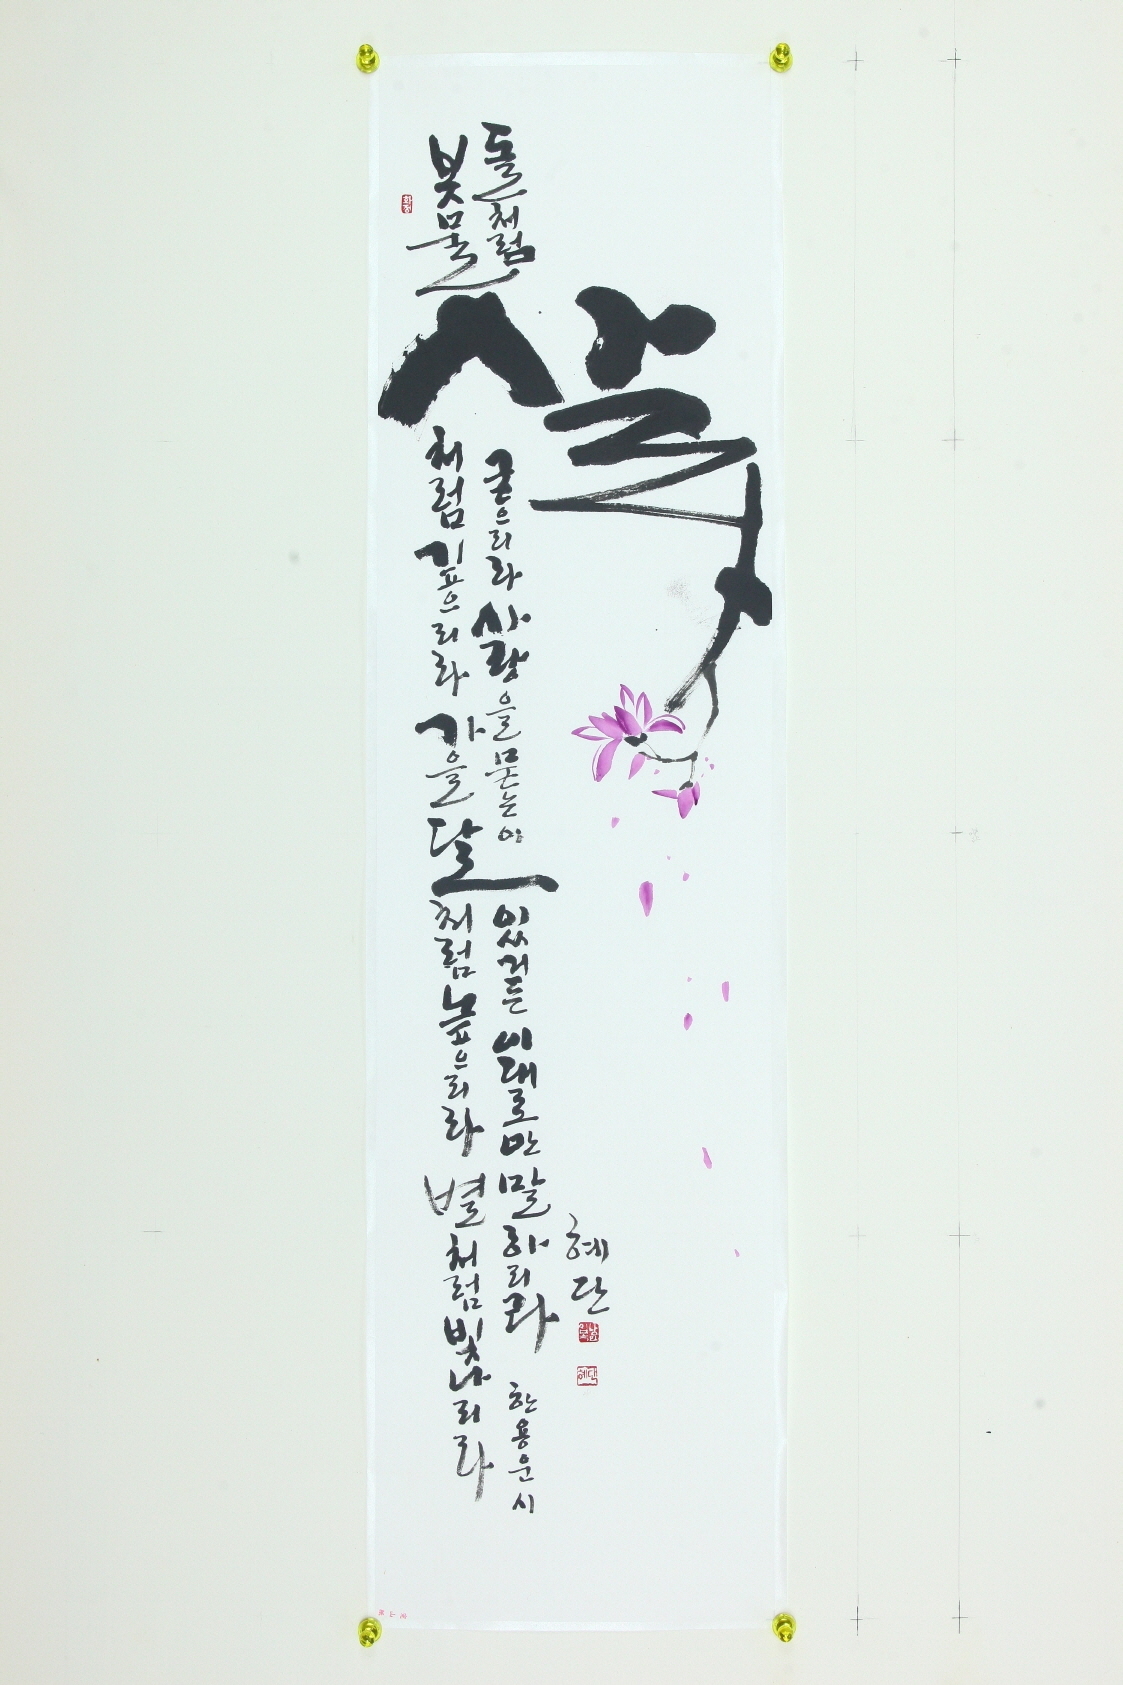 사랑
봇물처럼 깊으리라 가을달처럼 높으리라 별처럼 빛나리라
돌처럼 굳으리라 사랑을 묻는 이 있거든 이대로만 말하리라 한용운 시
혜단
혜단